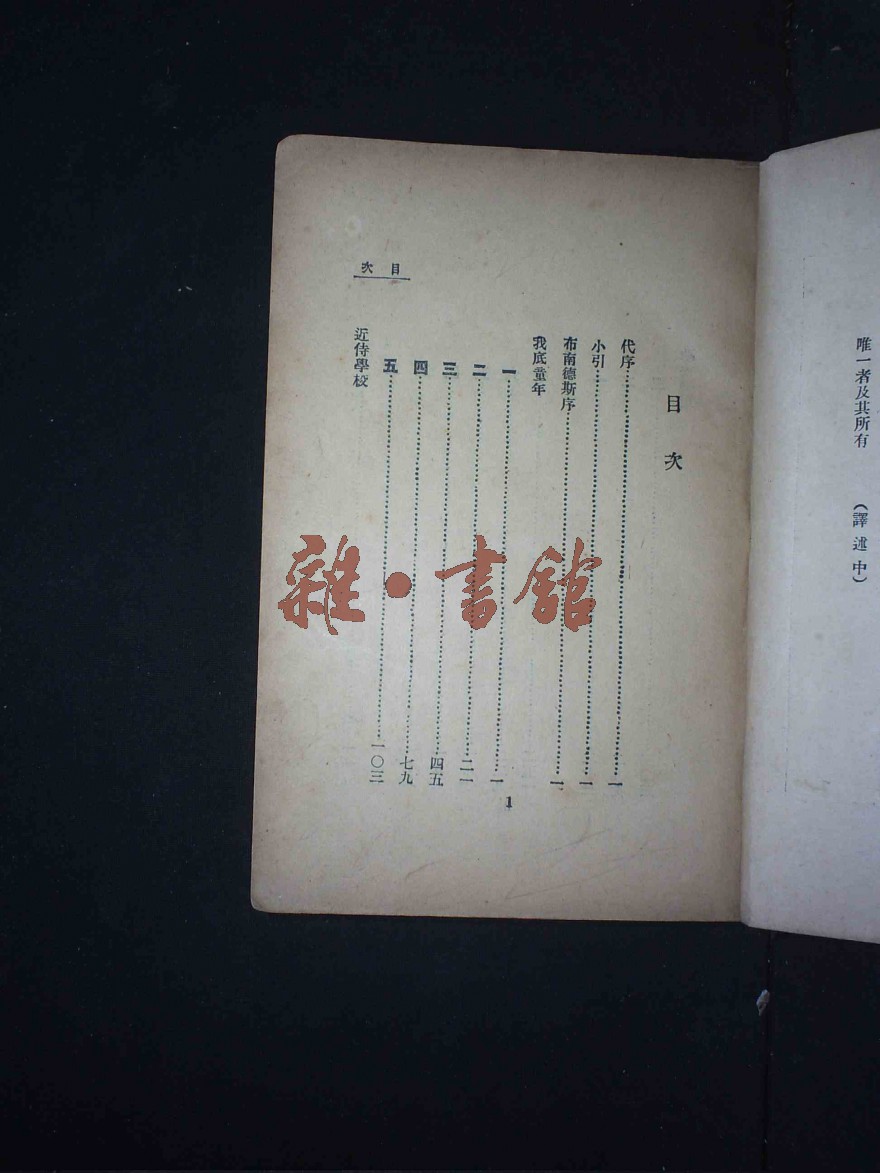 唯一者及其所有　（譯述中）
目次
代序……一
小引……一
布南德斯序……一
我底童年
一……一
二……二一
三……四五
四……七九
五……一〇三
近侍學校
目次
1
雜·書館